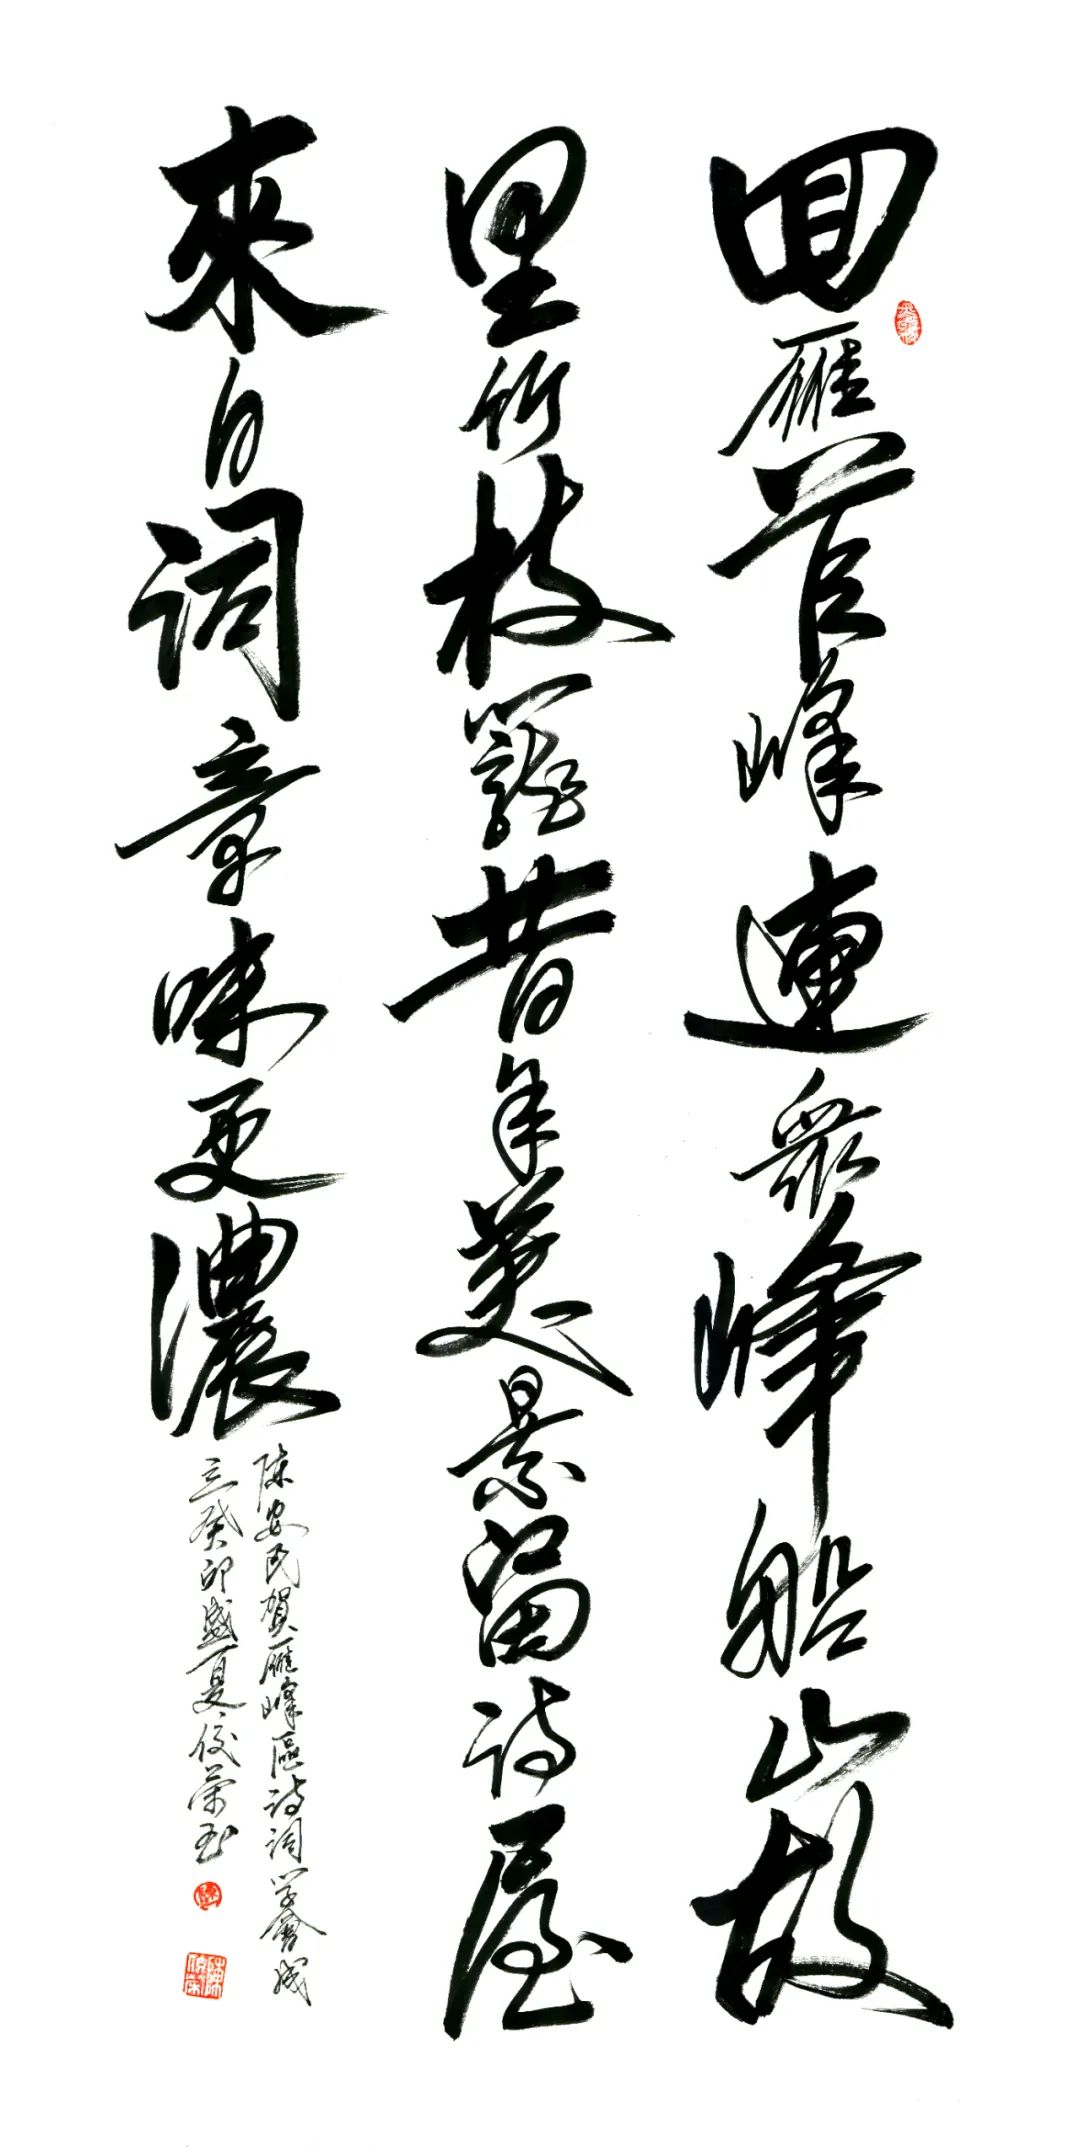 回雁首峰連眾峰船山故
里竹枝籠昔年美景留詩屋
來日詞章味更濃
陳安民賀雁峰區詩詞學會成
立癸卯盛夏俊榮書